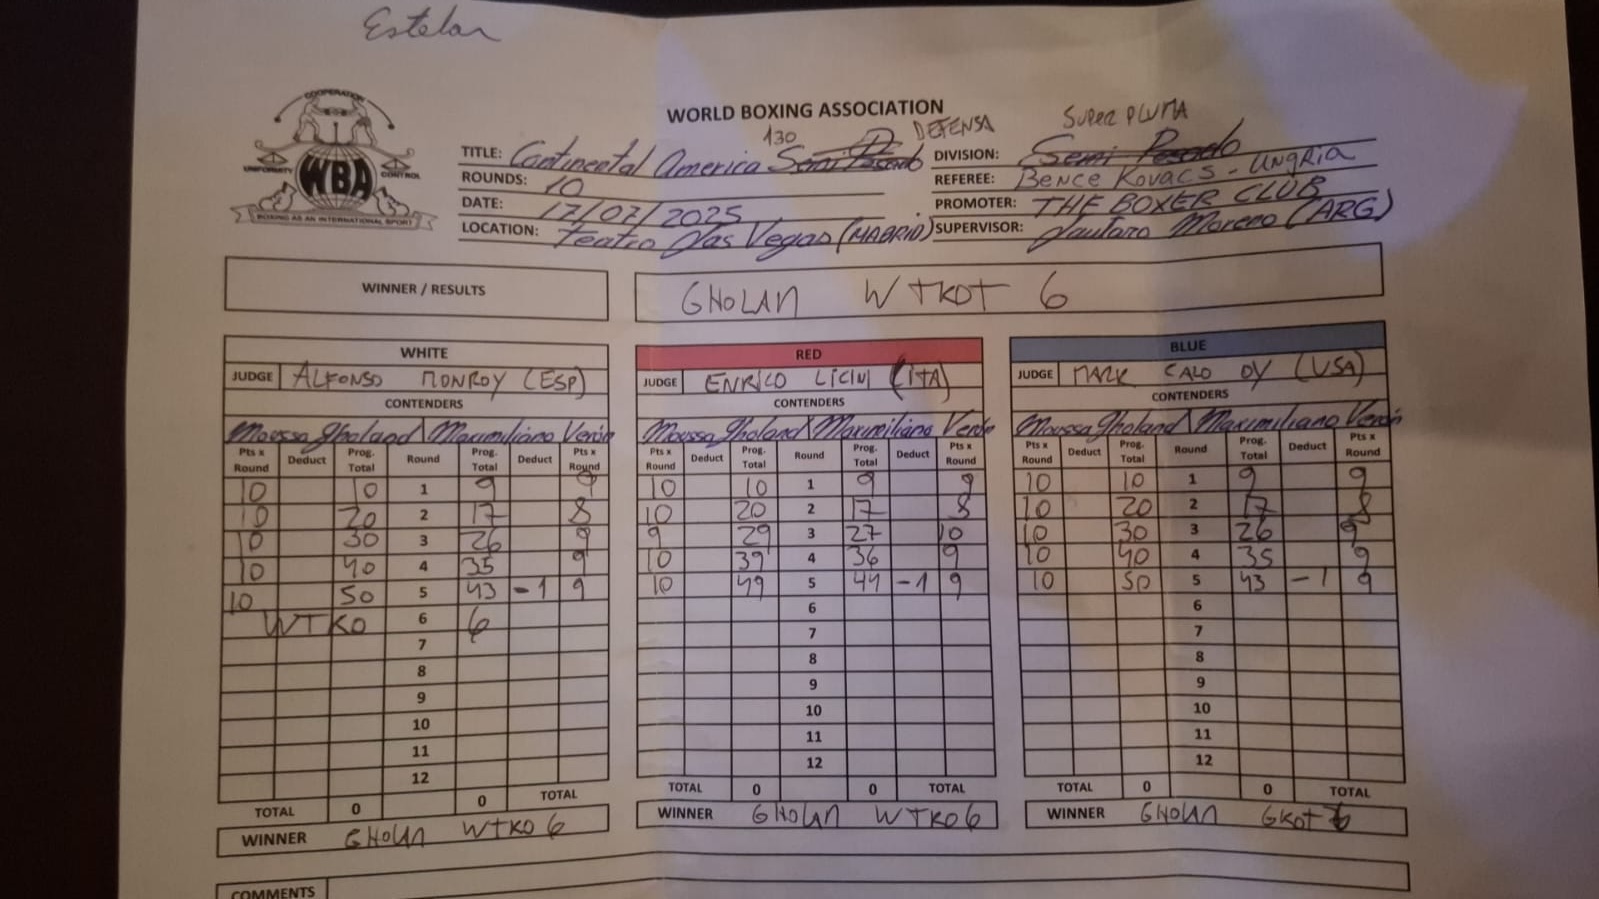 Estelar
COOPERATION
UNIFORMITY WBA CONTROL
BOXING AS AN INTERNATIONAL SPORT
WORLD BOXING ASSOCIATION
TITLE: Continental America Semi Pesado 130 DEFENSA
DIVISION: Semi Pesado SUPER PLUMA
ROUNDS: 10
REFEREE: BENCE KOVACS - UNGRIA
DATE: 17/07/2025
PROMOTER: THE BOXER CLUB
LOCATION: Teatro Las Vegas (MADRID)
SUPERVISOR: Lautaro Moreno (ARG)
WINNER / RESULTS GHOLAN WTKOT 6
WHITE
JUDGE ALFONSO MONROY (ESP)
CONTENDERS
Moussa Gholan Maximiliano Verón
Pts x Round Deduct Prog. Total Round Prog. Total Deduct Pts x Round
10 10 1 9 9
10 20 2 17 8
10 30 3 26 9
10 40 4 35 9
10 50 5 43 -1 9
WTKO 6 6
7
8
9
10
11
12
TOTAL 0 0 TOTAL
WINNER GHOLAN WTKO 6
RED
JUDGE ENRICO LICINI (ITA)
CONTENDERS
Moussa Gholan Maximiliano Verón
Pts x Round Deduct Prog. Total Round Prog. Total Deduct Pts x Round
10 10 1 9 9
10 20 2 17 8
9 29 3 27 10
10 39 4 36 9
10 49 5 44 -1 9
6
7
8
9
10
11
12
TOTAL 0 0 TOTAL
WINNER GHOLAN WTKO 6
BLUE
JUDGE MARK CALO OY (USA)
CONTENDERS
Moussa Gholan Maximiliano Verón
Pts x Round Deduct Prog. Total Round Prog. Total Deduct Pts x Round
10 10 1 9 9
10 20 2 17 8
10 30 3 26 9
10 40 4 35 9
10 50 5 43 -1 9
6
7
8
9
10
11
12
TOTAL 0 0 TOTAL
WINNER GHOLAN GKOT 6
COMMENTS